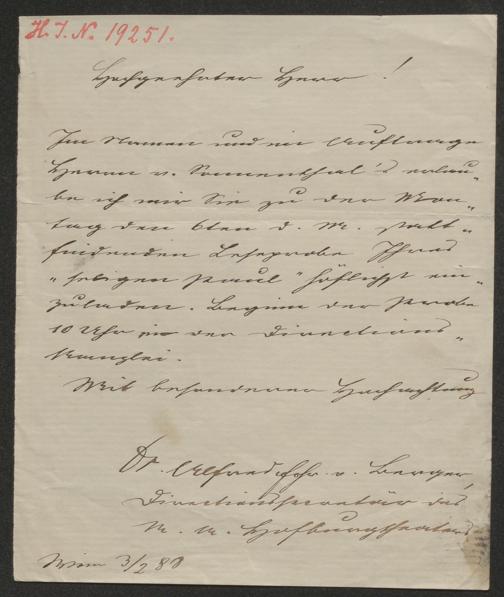 H. I. N. 19251.
Hochgeehrter Herr!
Im Namen und im Auftrage
Herrn v. Sonnenthal's erlau-
be ich mir Sie zu der Mon-
tag den 6ten d. M. statt-
findenden Leseprobe Ihres
"seligen Paul" höflichst ein-
zuladen. Beginn der Probe
10 Uhr in der Directions-
kanzlei.
Mit besonderer Hochachtung
Dr. Alfred Frhr. v. Berger,
Directionssecretär des
K. K. Hofburgtheaters
Wien 3/2 88